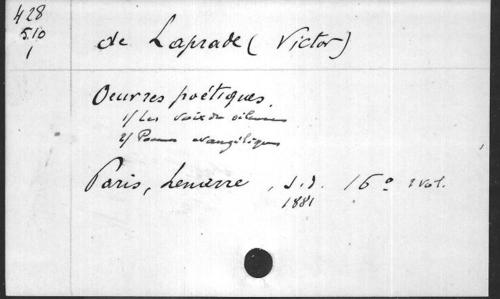 428
510
1
de Laprade (Victor)
Oeuvres poétiques.
1/ Les voix du silence
2/ Poemes evangéliques
Paris, Lemerre, s.d. 16° 2 vol.
1881